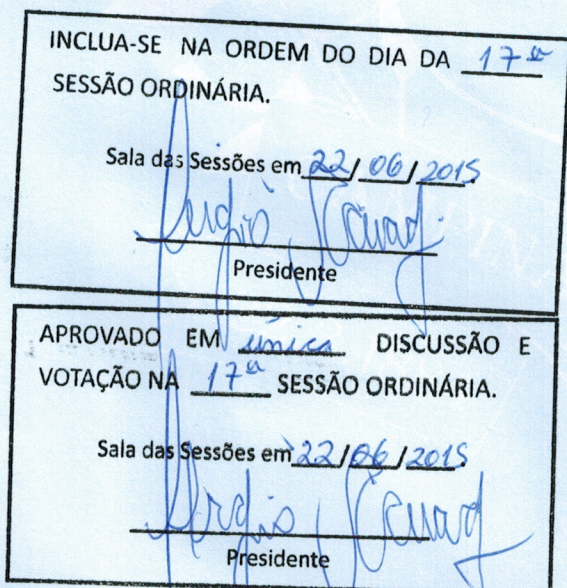 INCLUA-SE NA ORDEM DO DIA DA 17ª
SESSÃO ORDINÁRIA.
Sala das Sessões em 22/06/2015
Presidente
APROVADO EM única DISCUSSÃO E
VOTAÇÃO NA 17ª SESSÃO ORDINÁRIA.
Sala das Sessões em 22/06/2015
Presidente